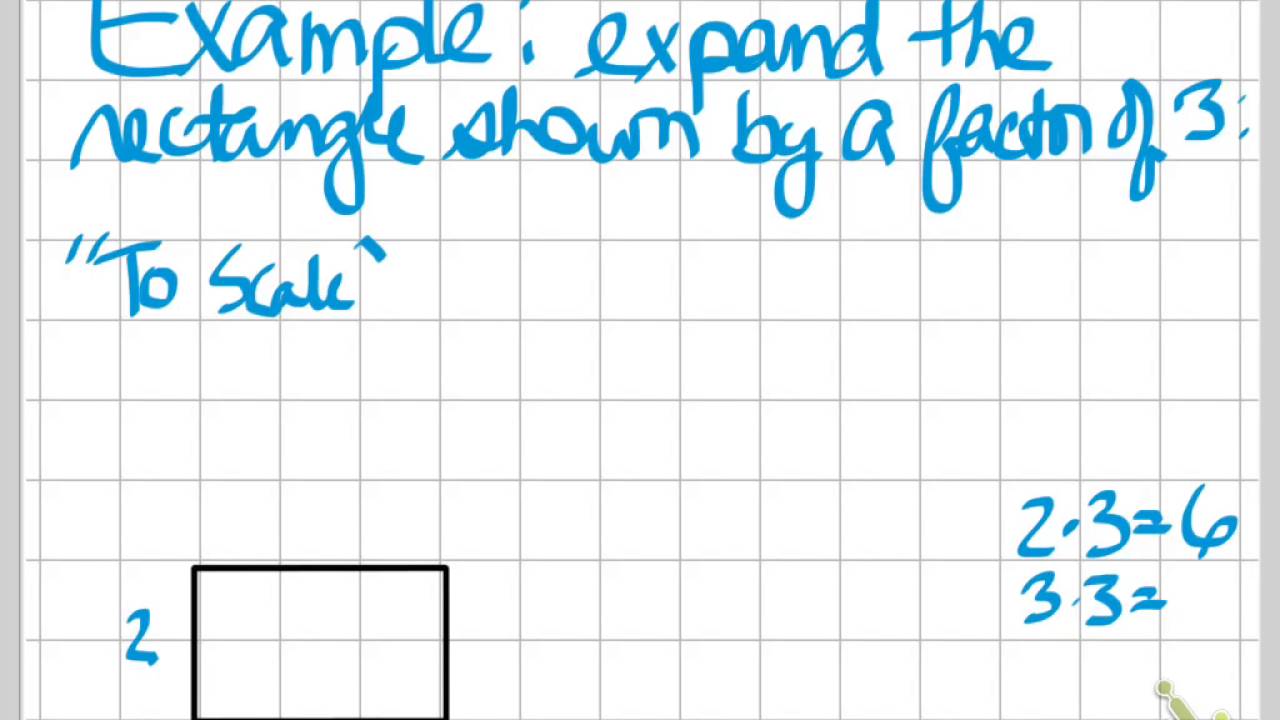 Example: expand the
rectangle shown by a factor of 3:
"To Scale"
2·3=6
3·3=
2